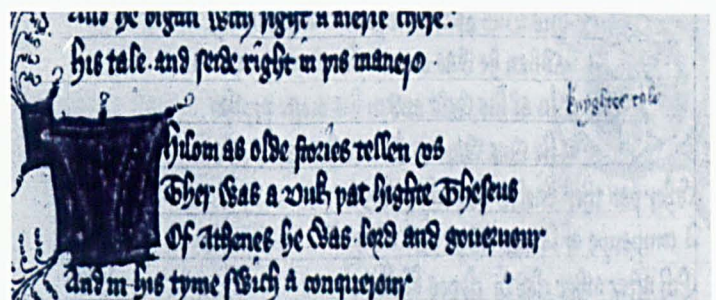 And he bigan with right a merie chere
his tale and seide right in þis manere
Whilom as olde stories tellen us
Ther was a duk þat highte Theseus
Of Athenes he was lord and gouernour
And in his tyme swich a conquerour
knyghtes tale